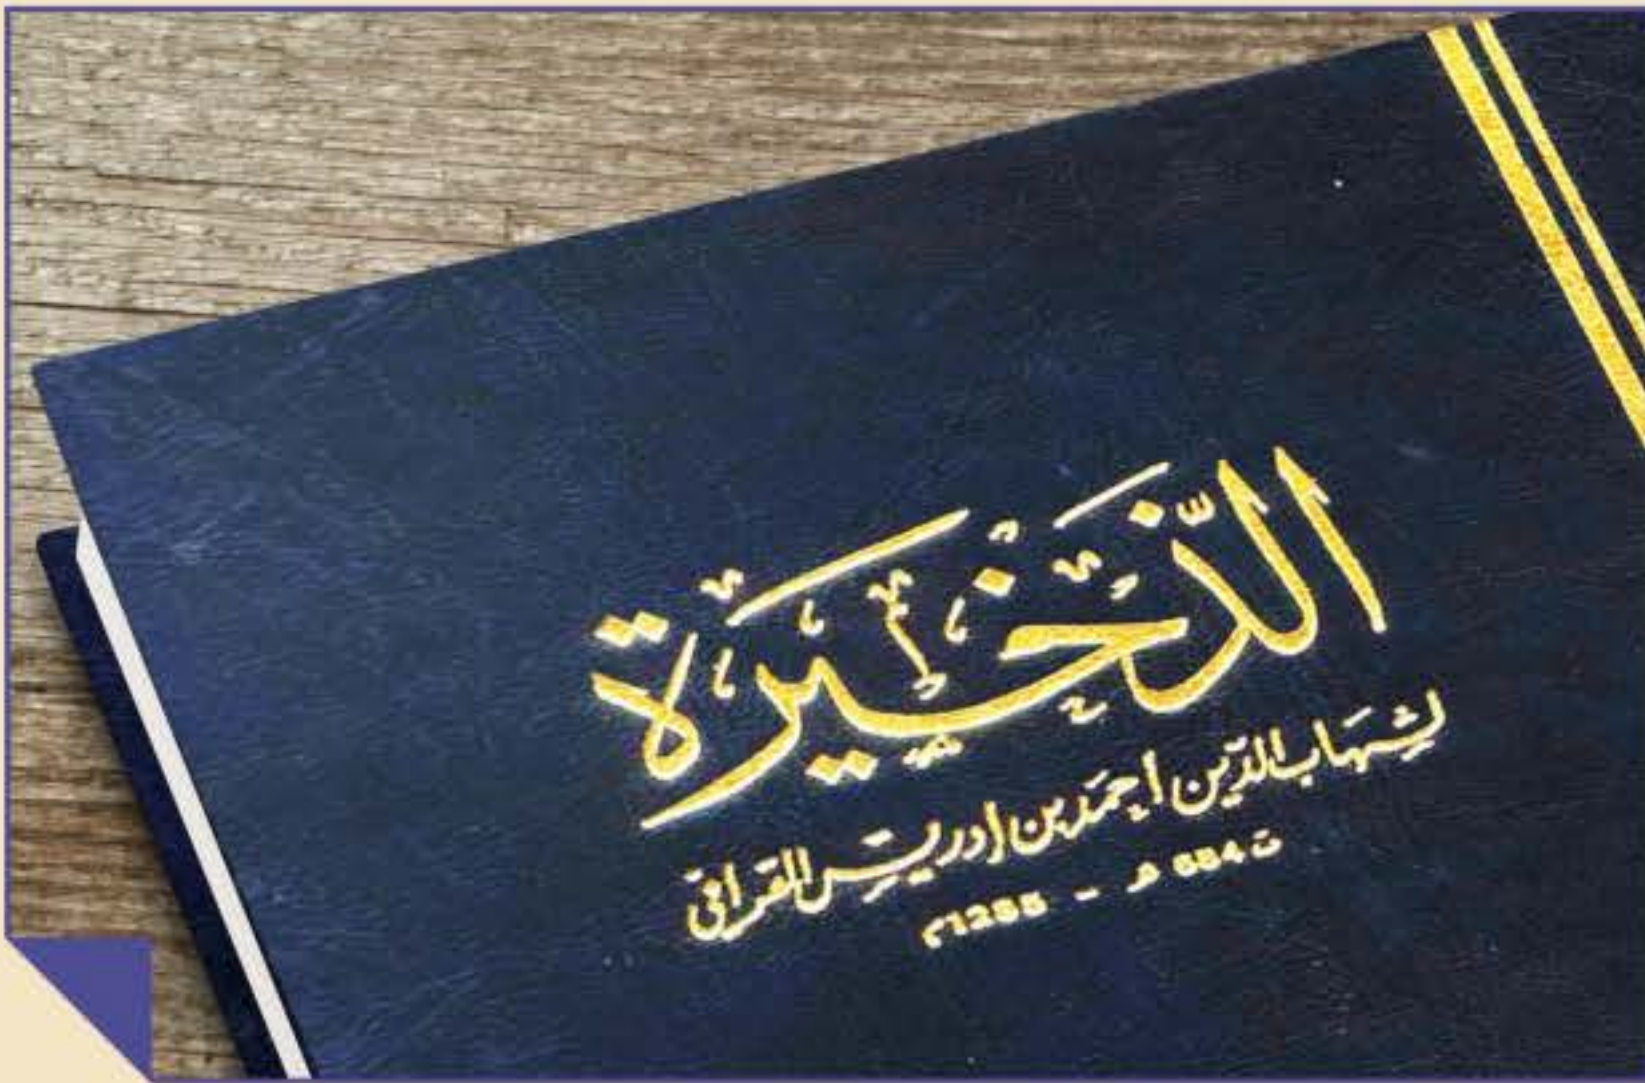 الذَّخِيرَة
لشهاب الدّين أحمد بن إدريس القرافي
ت 684 هـ - 1285م